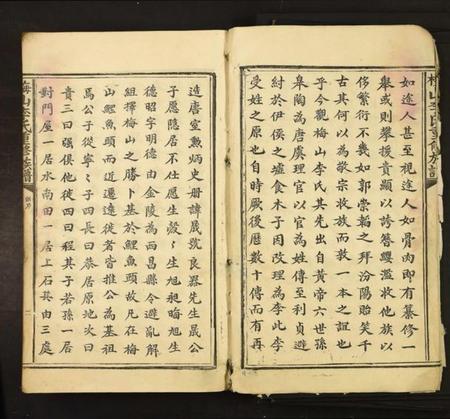 梅山李氏重修族譜
如途人甚至視途人如骨肉即有纂修一
舉或則攀援貴顯以誇眷纓濫收他族以
侈繁衍不幾如郭崇韜之拜汾陽貽笑千
古其何以為敬宗收族而敦一本之誼也
乎今觀梅山李氏其先出自黃帝六世孫
皋陶為唐虞理官以官為姓傳至利貞避
紂於伊侯之墟食木子因改理為李此李
受姓之原也自時厥後歷數十傳而有再
造唐室勲炳史册諱晟號良器先生晟公
子愿隱居不仕愿生歲歲生旭昶晦旭生
德昭字明德由金陵為西昌縣令避亂解
組擇梅山之勝卜基於鯉魚頭故凡在梅
山鯉魚頭而近遷遠徙者皆推公為基祖
馬公子從寧寧子四長曰恭居原地次曰
貴三曰碸俱他徙四曰程其子若孫一居
對門屋一居水南田一居上石其由三處
梅山李氏重修族譜
二